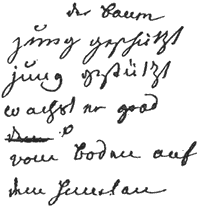 der baum
jung geschützt
jung gestützt
wachst er grad
vom boden auf
dem